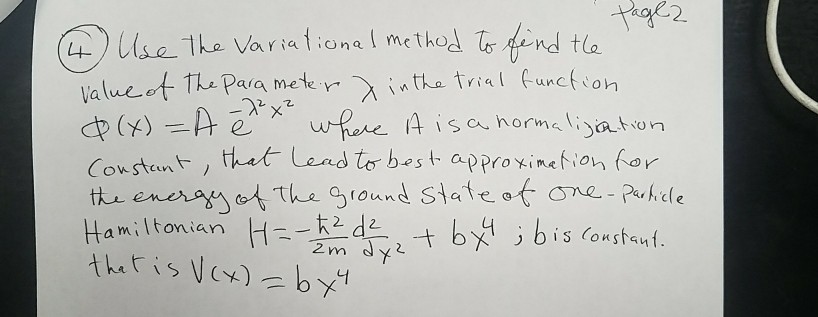 Page 2
(4) Use the Variational method to find the
value of the parameter λ in the trial function
Φ(x) = A e^{-λ²x²} where A is a normalization
Constant, that lead to best approximation for
the energy of the ground state of one-particle
Hamiltonian H = -ħ²/2m d²/dx² + bx⁴ ; b is constant.
that is V(x) = bx⁴